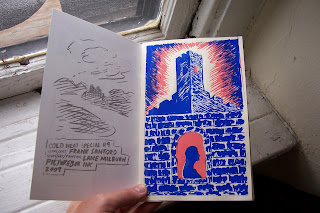 COLD HEAT SPECIAL #9
FRANK SANTORO
LANE MILBURN
PICTUREBOX INC
2009